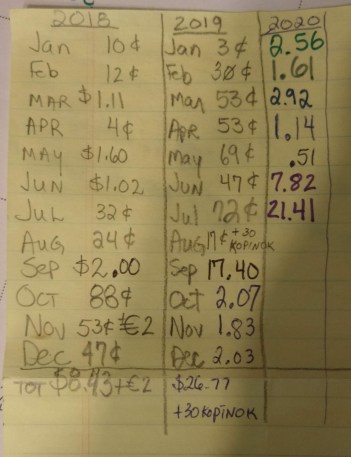 2018 2019 2020
Jan 10¢ Jan 3¢ 2.56
Feb 12¢ Feb 30¢ 1.61
MAR $1.11 Mar 53¢ 2.92
APR 4¢ Apr 53¢ 1.14
MAY $1.60 May 69¢ .51
JUN $1.02 JUN 47¢ 7.82
JUL 32¢ Jul 72¢ 21.41
Aug 24¢ Aug 17¢ +30 KOPINOK
Sep $2.00 Sep 17.40
OCT 88¢ Oct 2.07
Nov 53¢ €2 Nov 1.83
Dec 47¢ Dec 2.03
TOT $8.43+€2 $26.77
+30 KOPINOK